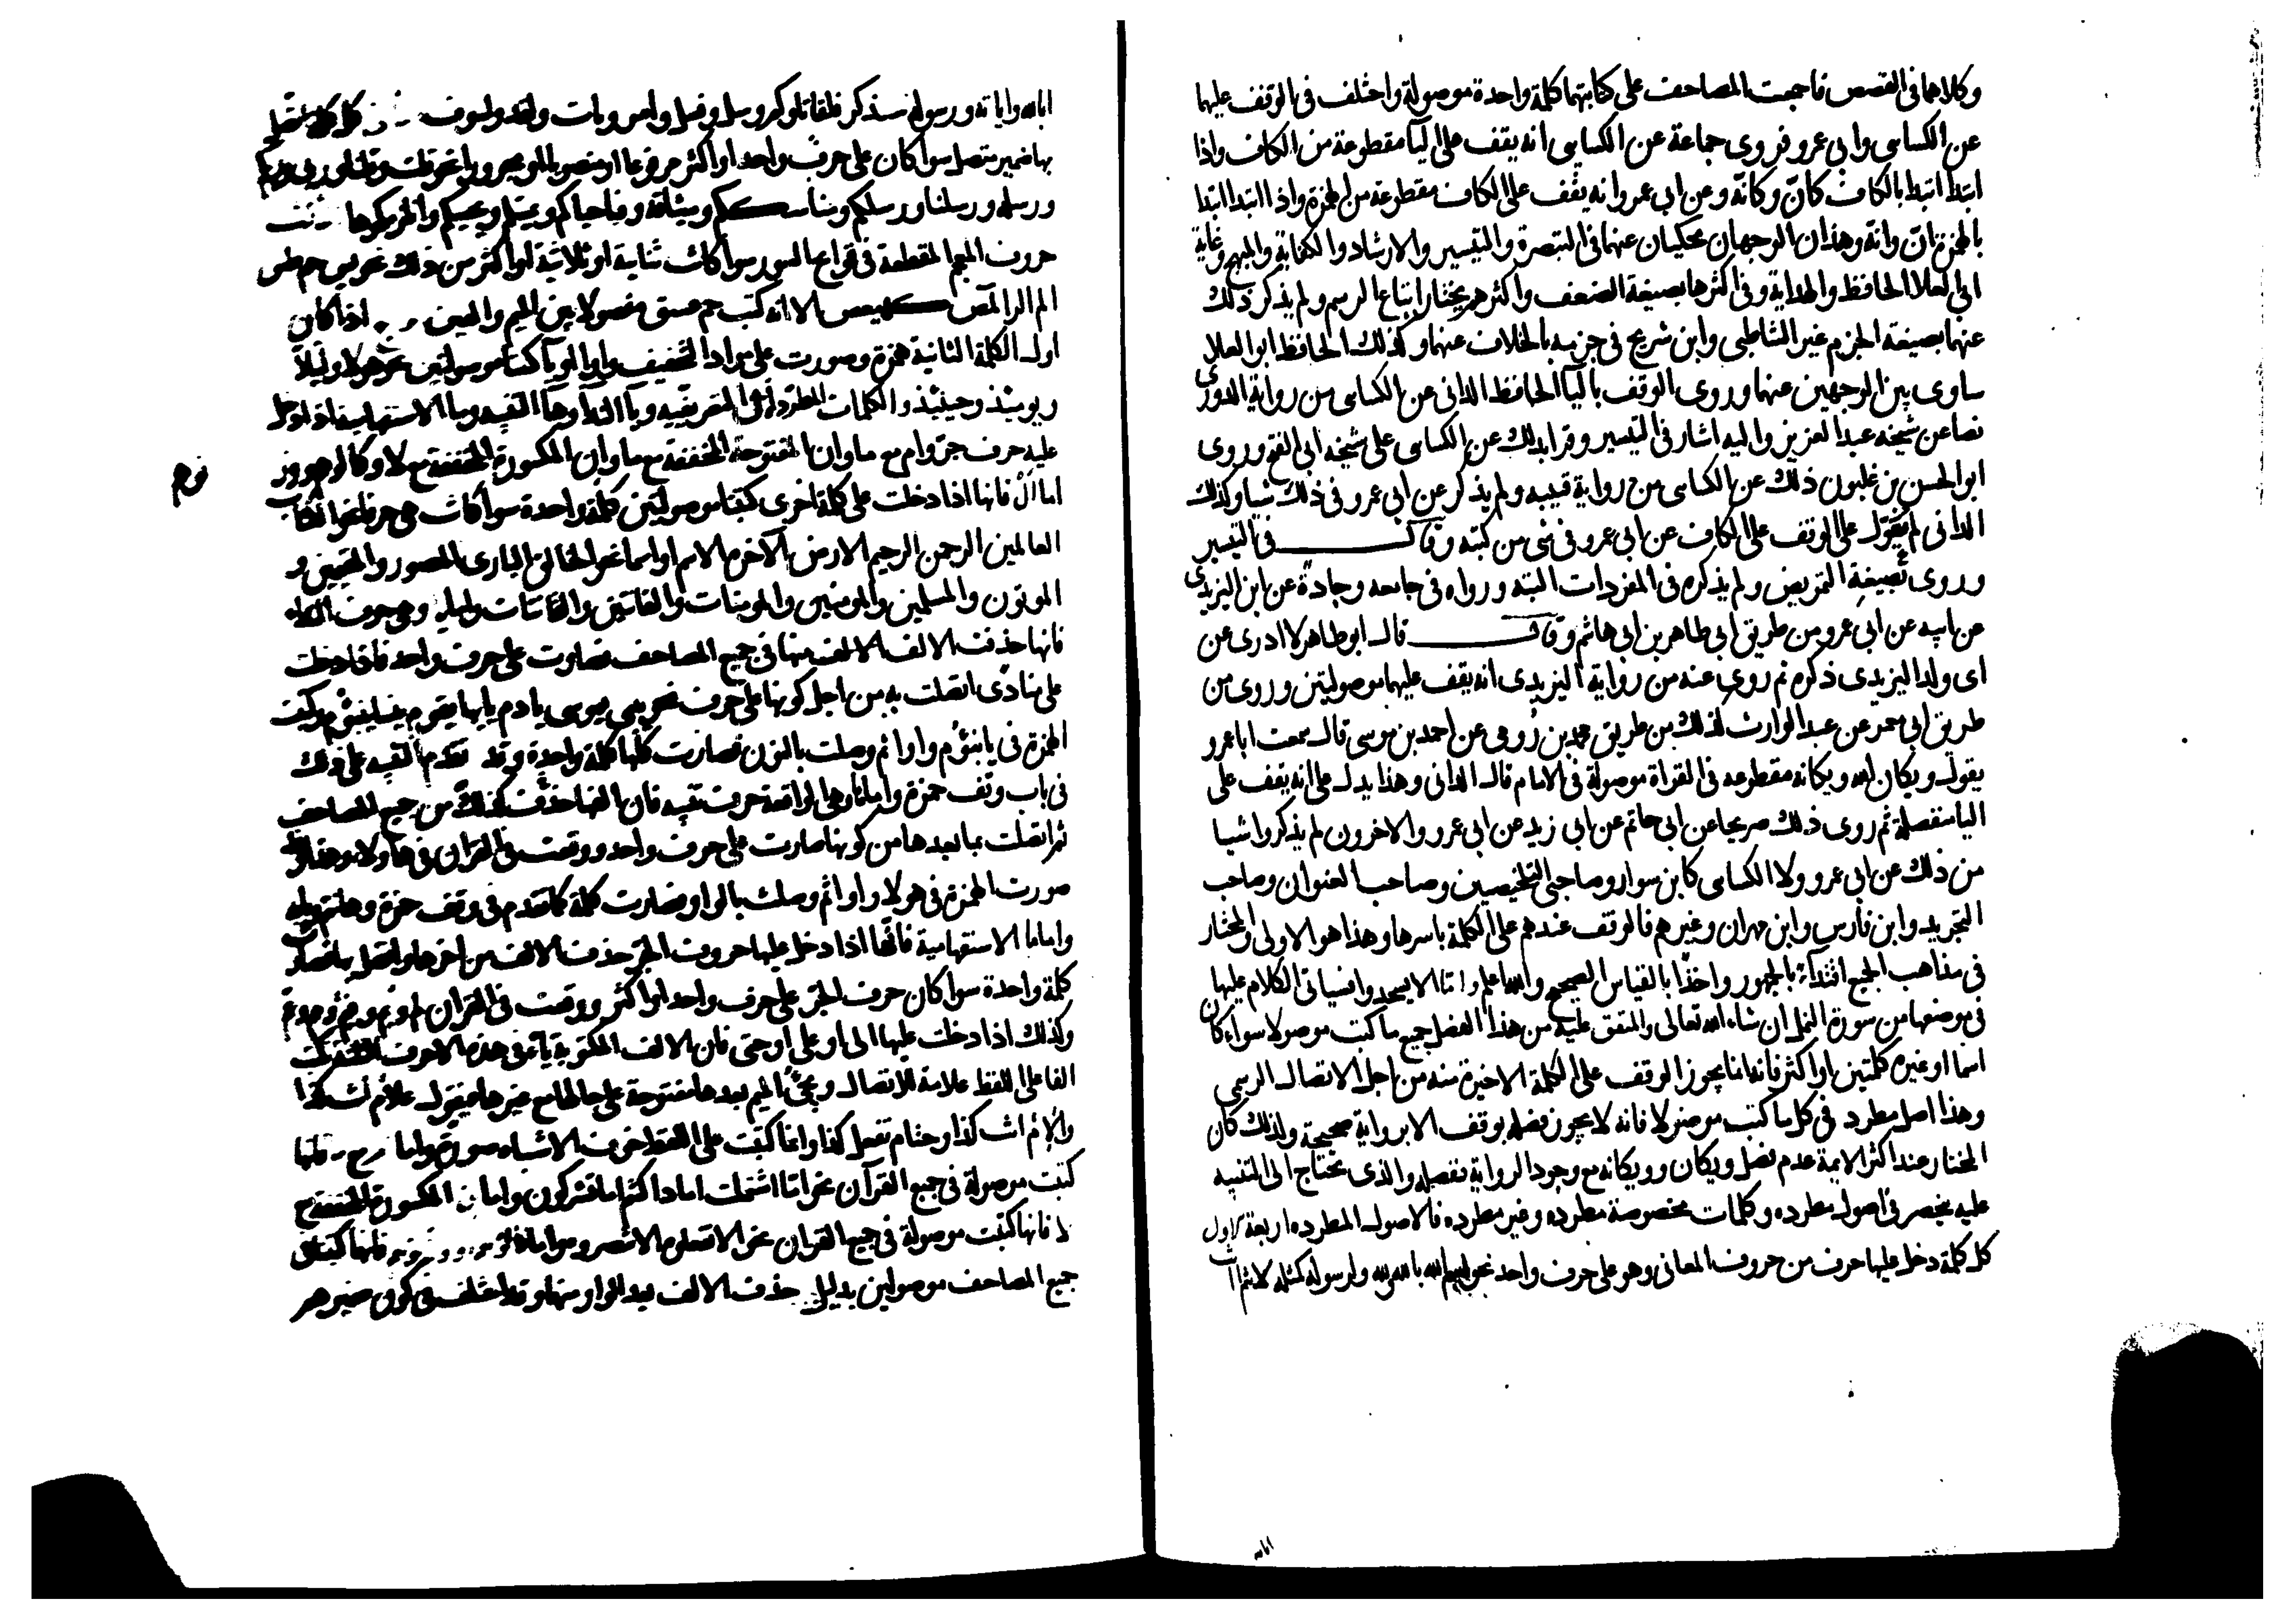 وكلاهما فى القصص فاجمعت المصاحف على كتابتهما كلمة واحدة موصولة واختلف فى الوقف عليهما
عن الكساى وابى عمرو فروى جماعة عن الكساى انه يقف على اليآ مقطوعة من الكاف واذا
ابتدا ابتدا بالكاف كانّ وكانّه وعن ابى عمرو انه يقف على الكاف مقطوعة من الهمزة واذا ابتدا ابتدا
بالهمزة انّ وانّه وهذان الوجهان محكيان عنهما فى التبصرة والتيسير والارشاد والكفاية والمبهج وغاية
ابى العلا الحافظ والهداية وفى اكثرها بصيغة الضعف واكثرهم يختار اتباع الرسم ولم يذكر ذلك
عنهما بصيغة الجزم غير الشاطبى وابن شريح فى جزمه بالخلاف عنهما وكذلك الحافظ ابو العلا
ساوى بين الوجهين عنهما وروى الوقف باليآ الحافظ الدانى عن الكساى من رواية الدورى
نصا عن شيخه عبد العزيز واليه اشار فى التيسير وقرا بذلك عن الكساى على شيخه ابى الفتح وروى
ابو الحسن بن غلبون ذلك عن الكساى من رواية قتيبه ولم يذكر عن ابى عمرو فى ذلك شيا وكذلك
الدانى لم يعوّل على الوقف على الكاف عن ابى عمرو فى شى من كتبه وقال فى التيسير
وروى بصيغة التمريض ولم يذكره فى المفردات البتة ورواه فى جامعه وجادة عن ابن اليزيدى
عن ابيه عن ابى عمرو من طريق ابى طاهر بن ابى هاشم وقال قال ابو طاهر لا ادرى عن
اى ولد اليزيدى ذكره ثم روى عنه من رواية اليزيدى انه يقف عليهما موصولتين وروى من
طريق ابى معمر عن عبد الوارث كذلك من طريق محمد بن رومى عن احمد بن موسى قال سمعت ابا عمرو
يقول ويكان الله ويكانه مقطوعه فى القراة موصولة فى الامام قال الدانى وهذا يدل على انه يقف على
اليا منفصلة ثم روى ذلك صريحا عن ابى حاتم عن ابى زيد عن ابى عمرو والاخرون لم يذكروا شيا
من ذلك عن ابى عمرو ولا الكساى كابن سوار وصاحبى التلخيصين وصاحب العنوان وصاحب
التجريد وابن فارس وابن مهران وغيرهم فالوقف عندهم على الكلمة باسرها وهذا هو الاولى والمختار
فى مذاهب الجميع اقتدآء بالجمهور واخذا بالقياس الصحيح والله اعلم واما الا يسجدوا فسياتى الكلام عليها
فى موضعها من سورة النمل ان شاء الله تعالى والمتفق عليه من هذا الفصل جميع ما كتب موصولا سواء كان
اسما او غيره كلمتين او اكثر فانه انما يجوز الوقف على الكلمة الاخيرة منه من اجل الاتصال الرسمى
وهذا اصل مطرد فى كل ما كتب موصولا فانه لا يجوز فصله بوقف الا برواية صحيحة ولذلك كان
المختار عند اكثر الايمة عدم فصل ويكان وويكانه مع وجود الرواية بفصله والذى يحتاج الى التنبيه
عليه ينحصر فى اصول مطرده وكلمات مخصوصة مطرده وغير مطرده فالاصول المطرده اربعة الاول
كل كلمة دخل عليها حرف من حروف المعانى وهو على حرف واحد نحو بسم الله بالله لله ولرسوله كمثله لانتم
ابالله واياته ورسوله سنذكر فلقاتلوكم وسل وفسل وامر وبات ولقد ولسوف كل كلمة اتصل
بها ضمير متصل سوا كان على حرف واحد او اكثر مرفوعا او منصوبا او مجرورا نحو قلت وقلنا وربى وربكم
ورسله ورسلنا ورسلكم ومناسككم وميثاقه وفاحياكم ويميتكم ويحييكم وانلزمكموها
حروف المعجم المقطعة فى فواتح السور سوا كانت ثنايية او ثلاثية او اكثر من ذلك نحو يس حم طس
الم الر المص كهيعص الا انه كتب حم عسق مفصولا بين الميم والعين اذا كان
اول الكلمة الثانية همزة وصورت على مراد التخفيف واوا او يآ كتبتا موصولتين نحو هولا وليلا
ويومئذ وحينئذ والكلمات المطردة ال التعريفيه ويا الندا وها التنبيه وما الاستفهامية اذا دخل
عليه حرف جر وام مع ما وان المفتوحة المخففة مع ما وان المكسورة المخففة مع لا وكالوهم ووزنوهم
اما ال فانها اذا دخلت على كلمة اخرى كتبتا موصولتين كلمة واحدة سوا كانت هى حرفا نحو الكتاب
العالمين الرحمن الرحيم الارض الاخرة الاسم او اسما نحو الخالق البارى المصور والمقيمين و
الموتون والمسلمين والمومنين والمومنات والقانتين والقانتات واما يا وهى حرف الندا
فانها حذفت الالف منها فى جميع المصاحف فصارت على حرف واحد فاذا دخلت
على منادى اتصلت به من اجل كونها على حرف نحو يبنى يموسى يادم يايها يقوم ينسا يبنؤم وكتبت
الهمزة فى يا بنؤم واوا ثم وصلت بالنون فصارت كلها كلمة واحدة وقد تقدم التنبيه على ذلك
فى باب وقف حمزة واما ها وهى الواقعة حرف تنبيه فان الفها حذفت كذلك من جميع المصاحف
ثم اتصلت بما بعدها من كونها صارت على حرف واحد ووقعت فى القران فى هولا وهذا
صورت الهمزة فى هولا واوا ثم وصلت بالواو فصارت كلمة كما تقدم فى وقف حمزة وهانتم
واما ما الاستفهامية فانها اذا دخل عليها حروف الجر حذفت الالف من اخرها واتصل بها فصارت
كلمة واحدة سوا كان حرف الجر على حرف واحد او اكثر ووقعت فى القران لم وبم وفيم ومم وعم
وكذلك اذا دخلت عليها الى او على او حتى فان الالف المكتوبة يآء فى هذه الاحرف الثلثة تكتب
الفا على اللفظ علامة للاتصال ويجئ الميم بعدها مفتوحة على حالها مع غيرها فيقول علام فعلت كذا
والام انت كذا وحتام تفعل كذا وانما كتبت على اللفظ خوف الاشتباه صورة واما ام مع ما فانها
كتبت موصولة فى جميع القرآن نحو اما اشتملت اماذا كنتم اما تشركون واما ان المكسورة المخففة مع
لا فانها كتبت موصولة فى جميع القران نحو الا تفعلوه الا تنصروه واما كالوهم ووزنوهم فانهما كتبا فى
جميع المصاحف موصولين بدليل حذف الالف بعد الواو منهما وقد اختلف فى كون ضمير هم